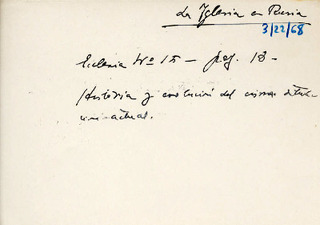 La Iglesia en Rusia
3/22/68
Ecclesia Nº 15 - pag. 18-
Historia y evolución del mismo. Situa-
ción actual.